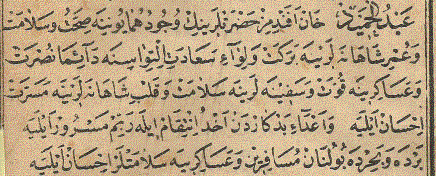 عبد الحميد خان افندیمز حضرتلرینك وجود همایونینه صحت و سلامت
وعمر شاهانه لرینه بركت ولوآء سعادت التواسنه دآئما نصرت
وعساكرینه قوت وسفینه لرینه سلامت وقلب شاهانه لرینه مسرت
احسان ایلیه واعدآء بدكاردن اخذ انتقام ایله ربم مسرور ایلیه
برده وبحرده بولنان مسافرین وعساكرینه سلامتلر احسان ایلیه